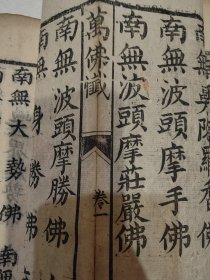 陀羅香佛
南無波頭摩手佛
南無波頭摩莊嚴佛
萬佛懺
卷一
南無波頭摩勝佛
南無
身勝佛
南無大勢佛
南無